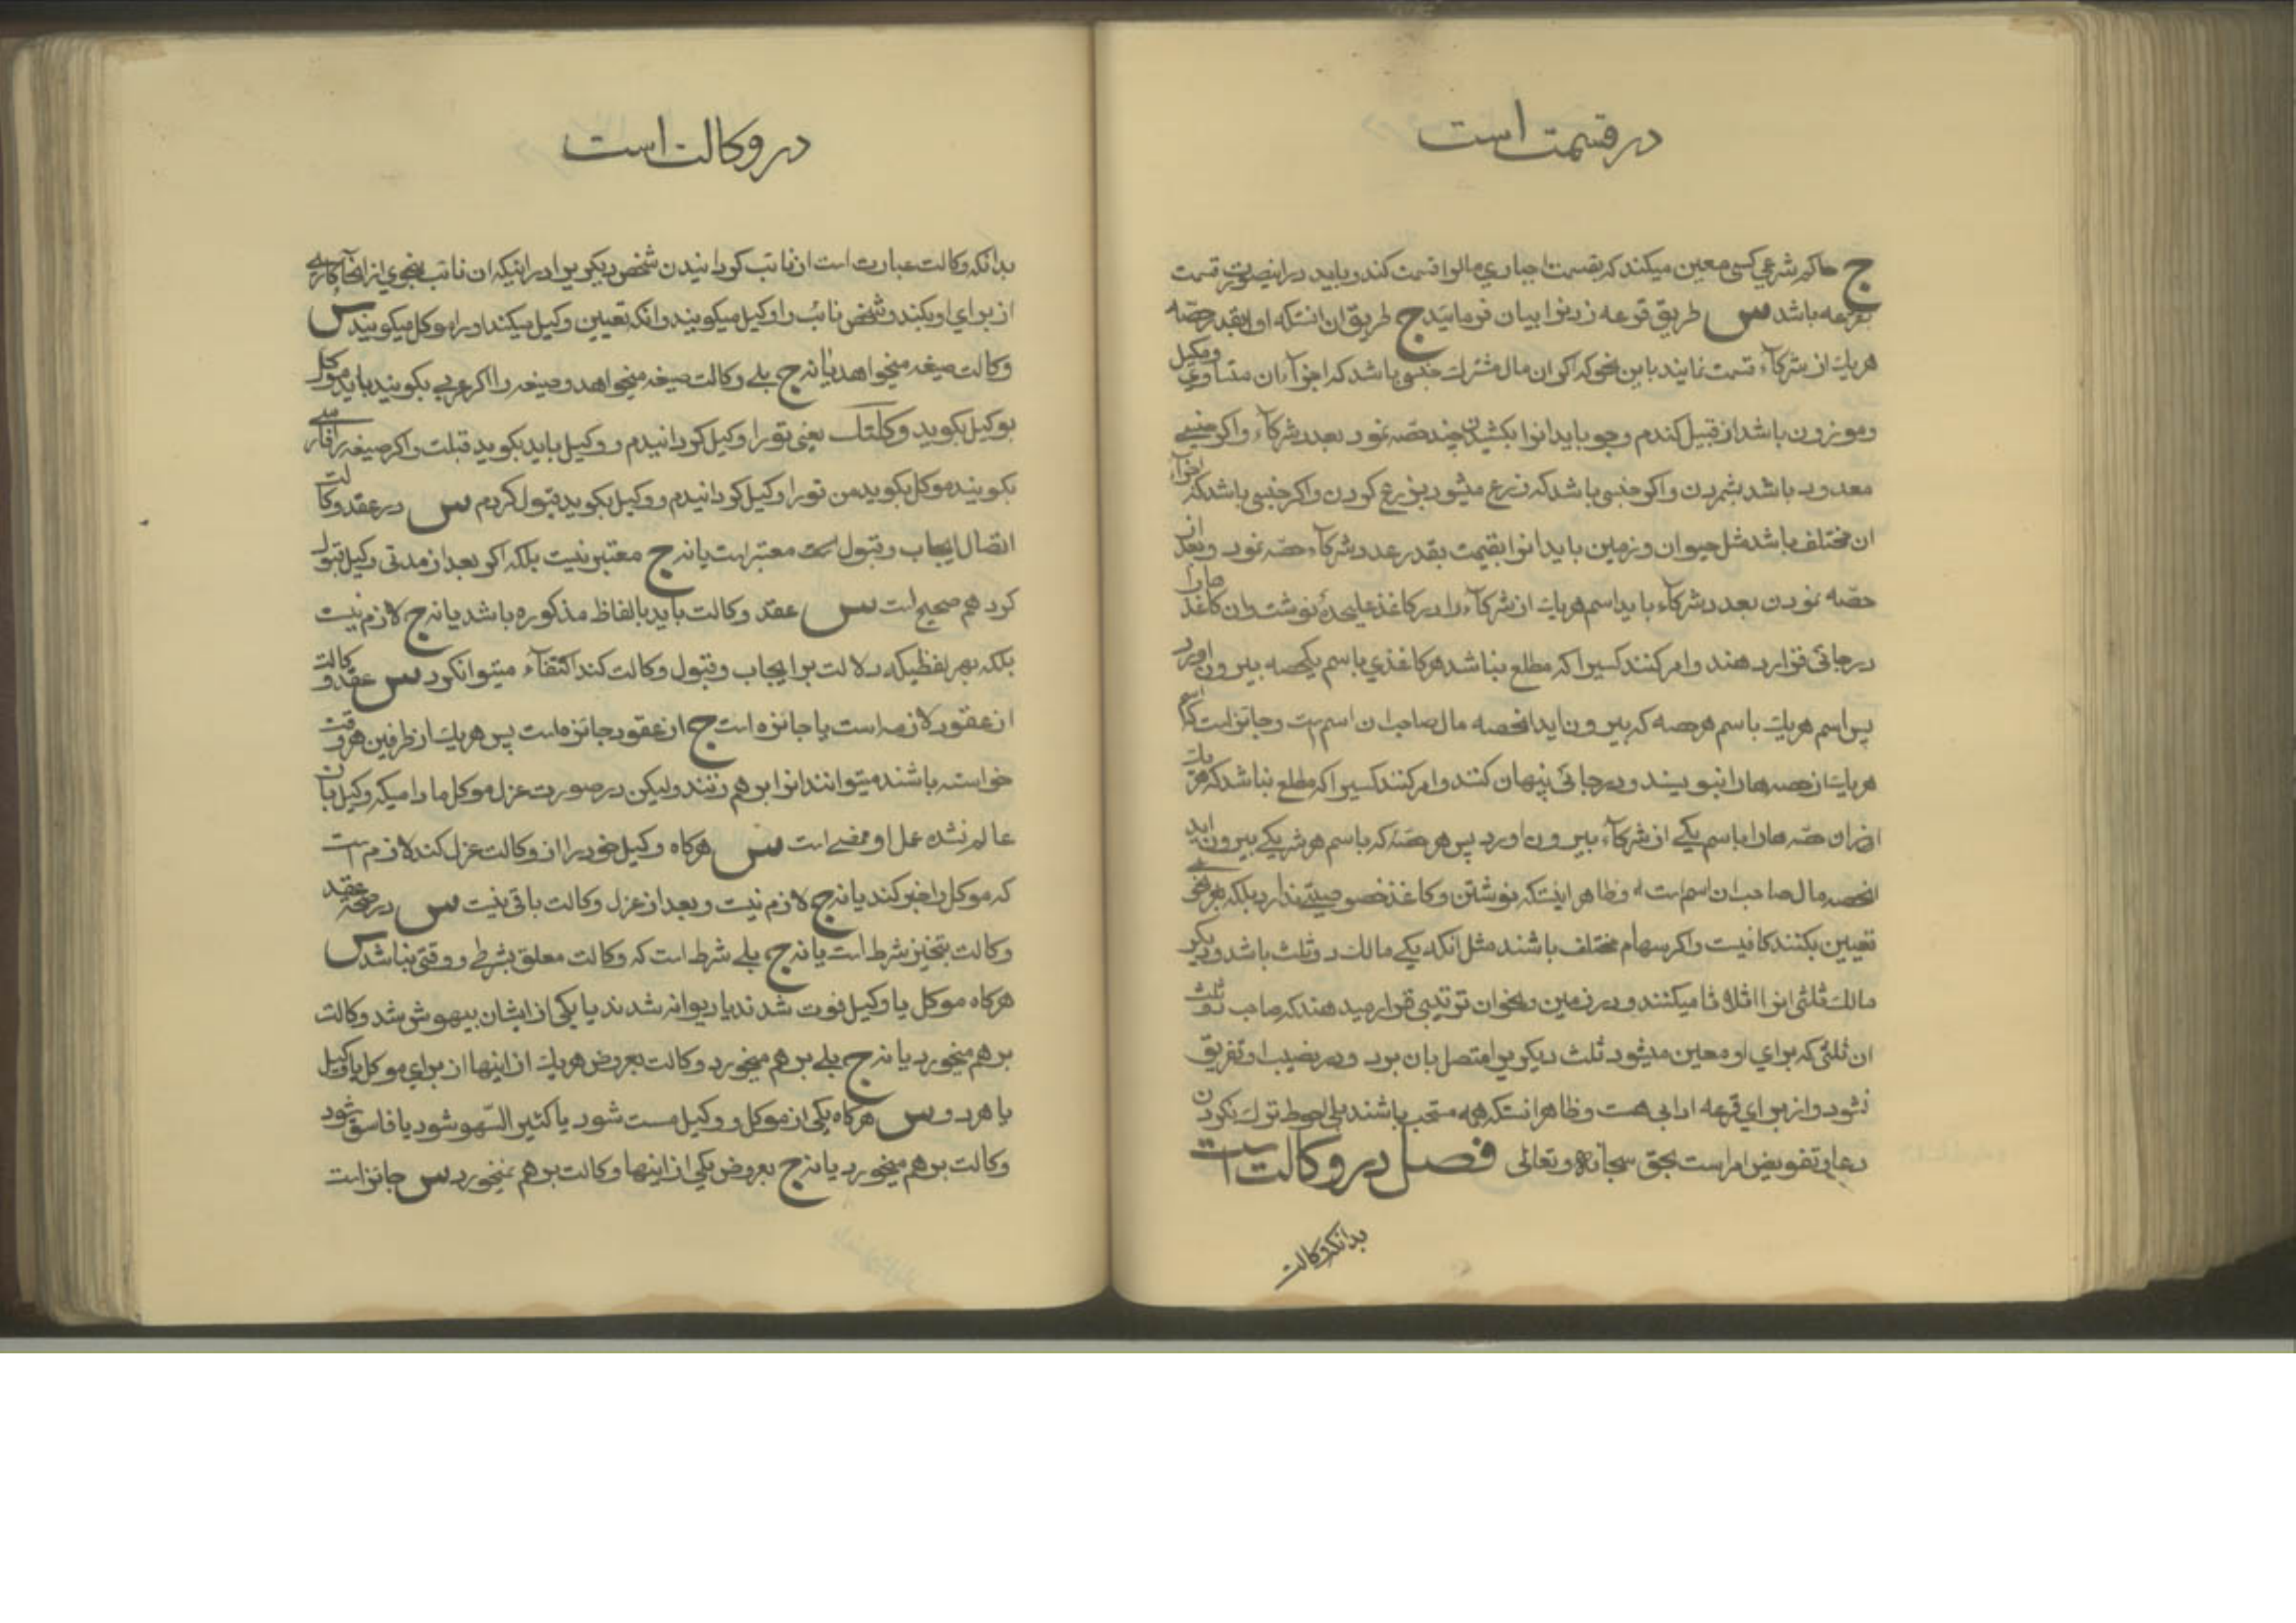 در قسمت است
ج حاکم شرعی کسی معین میکند که بقسمت اجباری مالرا قسمت کند و باید در اینصورت قسمت
بقرعه باشد س طریق قرعه زدنرا بیان فرمائید ج طریق ان انستکه اولا بقدر حصّه
هریك از شرکآء قسمت نمایند باین نحو که اکر ان مال مشترك جنسی باشد که اجزآء ان متساوی ومکیل
وموزون باشد از قبیل کندم وجو باید انرا بکشیدن چند حصّه نمود بعدد شرکآء واکر جنسی
معدود باشد بشمردن واکر جنسی باشد که ذرع میشود بذرع کردن واکر جنسی باشد که اجزآء
ان مختلف باشد مثل حیوان وزمین باید انرا بقیمت بقدر عدد شرکآء حصّه نمود وبعد از
حصّه نمودن بعدد شرکاء باید اسم هریك از شرکآء را در کاغذ علیحدهٔ نوشت وان کاغذ هارا
در جائی قرار دهند وامر کنند کسیرا که مطلع نباشد هر کاغذی باسم یکحصه بیرون اورد
پس اسم هریك باسم هر حصه که بیرون اید انحصه مال صاحب ان اسم است وجائز است که اسم
هریك از حصه هارا بنویسند ودر جائی پنهان کنند وامر کنند کسیرا که مطلع نباشد که هر یك
از ان حصّه هارا باسم یکی از شرکآء بیرون اورد پس هر حصّهٔ که باسم هر شریکی بیرون اید
انحصه مال صاحب ان اسم است و ظاهر اینستکه نوشتن وکاغذ خصوصیتی ندارد بلکه بهر نحوی
تعیین بکنند کافیست واکر سهام مختلف باشند مثل انکه یکی مالك دو ثلث باشد ودیکر
مالك ثلثی انرا اثلاثا میکنند ودر زمین ونحوان ترتیبی قرار میدهند که صاحب دو ثلث
ان ثلثی که برای او معین میشود ثلث دیکر برا متصل بان برد ودر نصیب او تفریق
نشود واز برای قرعه ادابی هست وظاهر انستکه همه مستحب باشند بلی احوط ترك نکردن
دعا وتفویض امر است بحق سبحانه وتعالی فصل در وکالت است
بدانکه وکالت
در وکالت است
بدانکه وکالت عبارت است از نائب کردانیدن شخص دیکریرا در اینکه ان نائب بنحوی از انحآء کاری
از برای او بکند وشخص نائب را وکیل میکویند وانکه تعیین وکیل میکند اورا موکل میکویند س
وکالت صیغه میخواهد یانه ج بلی وکالت صیغه میخواهد وصیغه را اکر عربی بکویند باید موکل
بوکیل بکوید وکلتك یعنی تورا وکیل کردانیدم ووکیل باید بکوید قبلت واکر صیغه را فارسی
بکویند موکل بکوید من تورا وکیل کردانیدم ووکیل بکوید قبول کردم س در عقد وکالت
اتصال ایجاب وقبول معتبر است یانه ج معتبر نیست بلکه اکر بعد از مدتی وکیل قبول
کرد هم صحیح است س عقد وکالت باید بالفاظ مذکوره باشد یانه ج لازم نیست
بلکه بهر لفظیکه دلالت بر ایجاب وقبول وکالت کند اکتفآء میتوانکرد س عقد وکالت
از عقود لازمه است یا جائزه است ج از عقود جائزه است پس هریك از طرفین هر وقت
خواسته باشند میتوانند انرا بر هم زنند ولیکن در صورت عزل موکل مادامیکه وکیل بان
عالم نشده عمل او ممضی است س هرکاه وکیل خود را از وکالت عزل کند لازم است
که موکل را خبر کند یانه ج لازم نیست وبعد از عزل وکالت باقی نیست س در صحّه عقد
وکالت تنجیز شرط است یانه ج بلی شرط است که وکالت معلق بشرطی ووقتی نباشد س
هرکاه موکل یا وکیل فوت شدند یا دیوانه شدند یا یکی از ایشان بیهوش شد وکالت
بر هم میخورد یانه ج بلی بر هم میخورد وکالت بعروض هریك از اینها از برای موکل یا وکیل
یا هردو س هرکاه یکی از موکل ووکیل مست شود یا کثیر السّهو شود یا فاسق شود
وکالت بر هم میخورد یانه ج بعروض یکی از اینها وکالت بر هم نمیخورد س جائز است